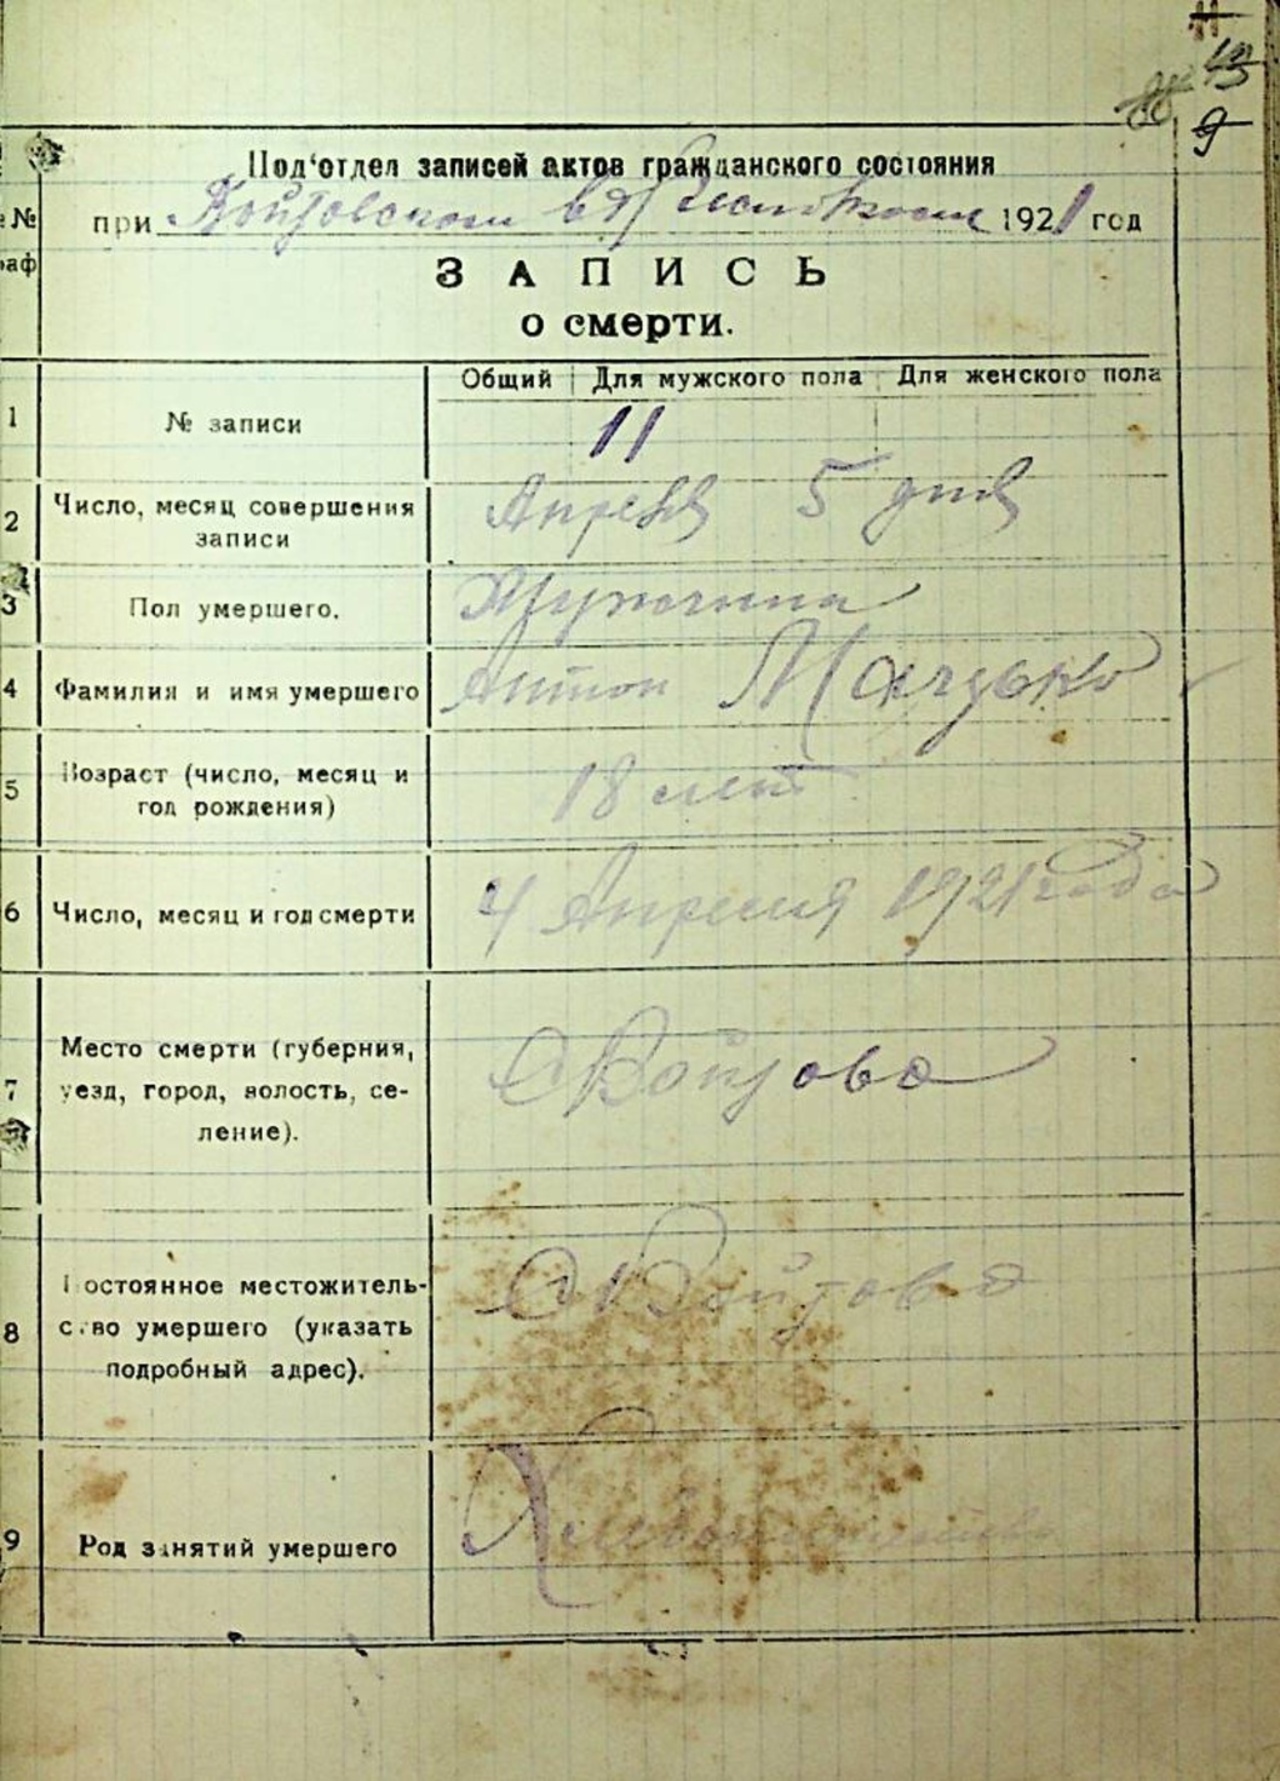 11
13
9
Под'отдел записей актов гражданского состояния
№ при Войтовском 1921 год
аф
ЗАПИСЬ
о смерти.
Общий Для мужского пола Для женского пола
1 № записи 11
2 Число, месяц совершения записи Апреля 5 дня
3 Пол умершего. Мужчина
4 Фамилия и имя умершего Антон
5 Возраст (число, месяц и год рождения) 18 лет
6 Число, месяц и год смерти 4 Апреля 1921 года
7 Место смерти (губерния,
уезд, город, волость, се-
ление). С Войтово
8 Постоянное местожитель-
ство умершего (указать
подробный адрес). С Войтово
9 Род занятий умершего